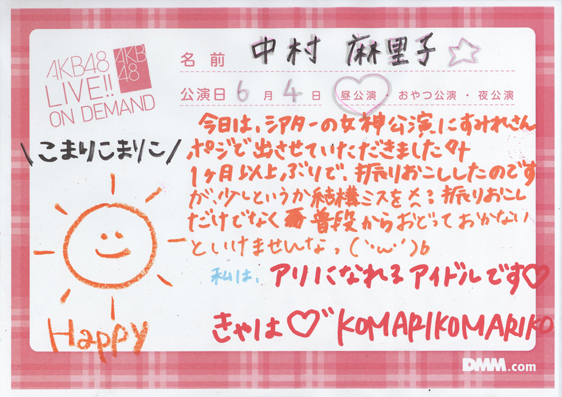 AKB48
LIVE!!
ON DEMAND
AKB
48
名前 中村 麻里子☆
公演日 6月4日 昼公演・おやつ公演・夜公演
\こまりこまりこ/
今日は、シアターの女神公演にすみれさん
ポジで出させていただきました
1ヶ月以上ぶりで、振りおこししたのです
が、少しというか結構ミスを 振りおこし
だけでなく 普段からおどっておかない
といけませんなっ(`・ω・´)b
私は、アリになれるアイドルです♡
きゃは♡" KOMARIKOMARIKO
Happy
DMM.com